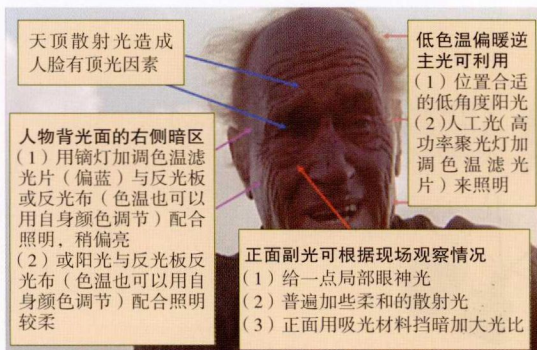 天顶散射光造成
人脸有顶光因素
低色温偏暖逆
主光可利用
（1）位置合适
的低角度阳光
（2）人工光（高
功率聚光灯加
调色温滤光
片）来照明
人物背光面的右侧暗区
（1）用镝灯加调色温滤
光片（偏蓝）与反光板
或反光布（色温也可以
用自身颜色调节）配合
照明，稍偏亮
（2）或阳光与反光板反
光布（色温也可以用自
身颜色调节）配合照明
较柔
正面副光可根据现场观察情况
（1）给一点局部眼神光
（2）普遍加些柔和的散射光
（3）正面用吸光材料挡暗加大光比